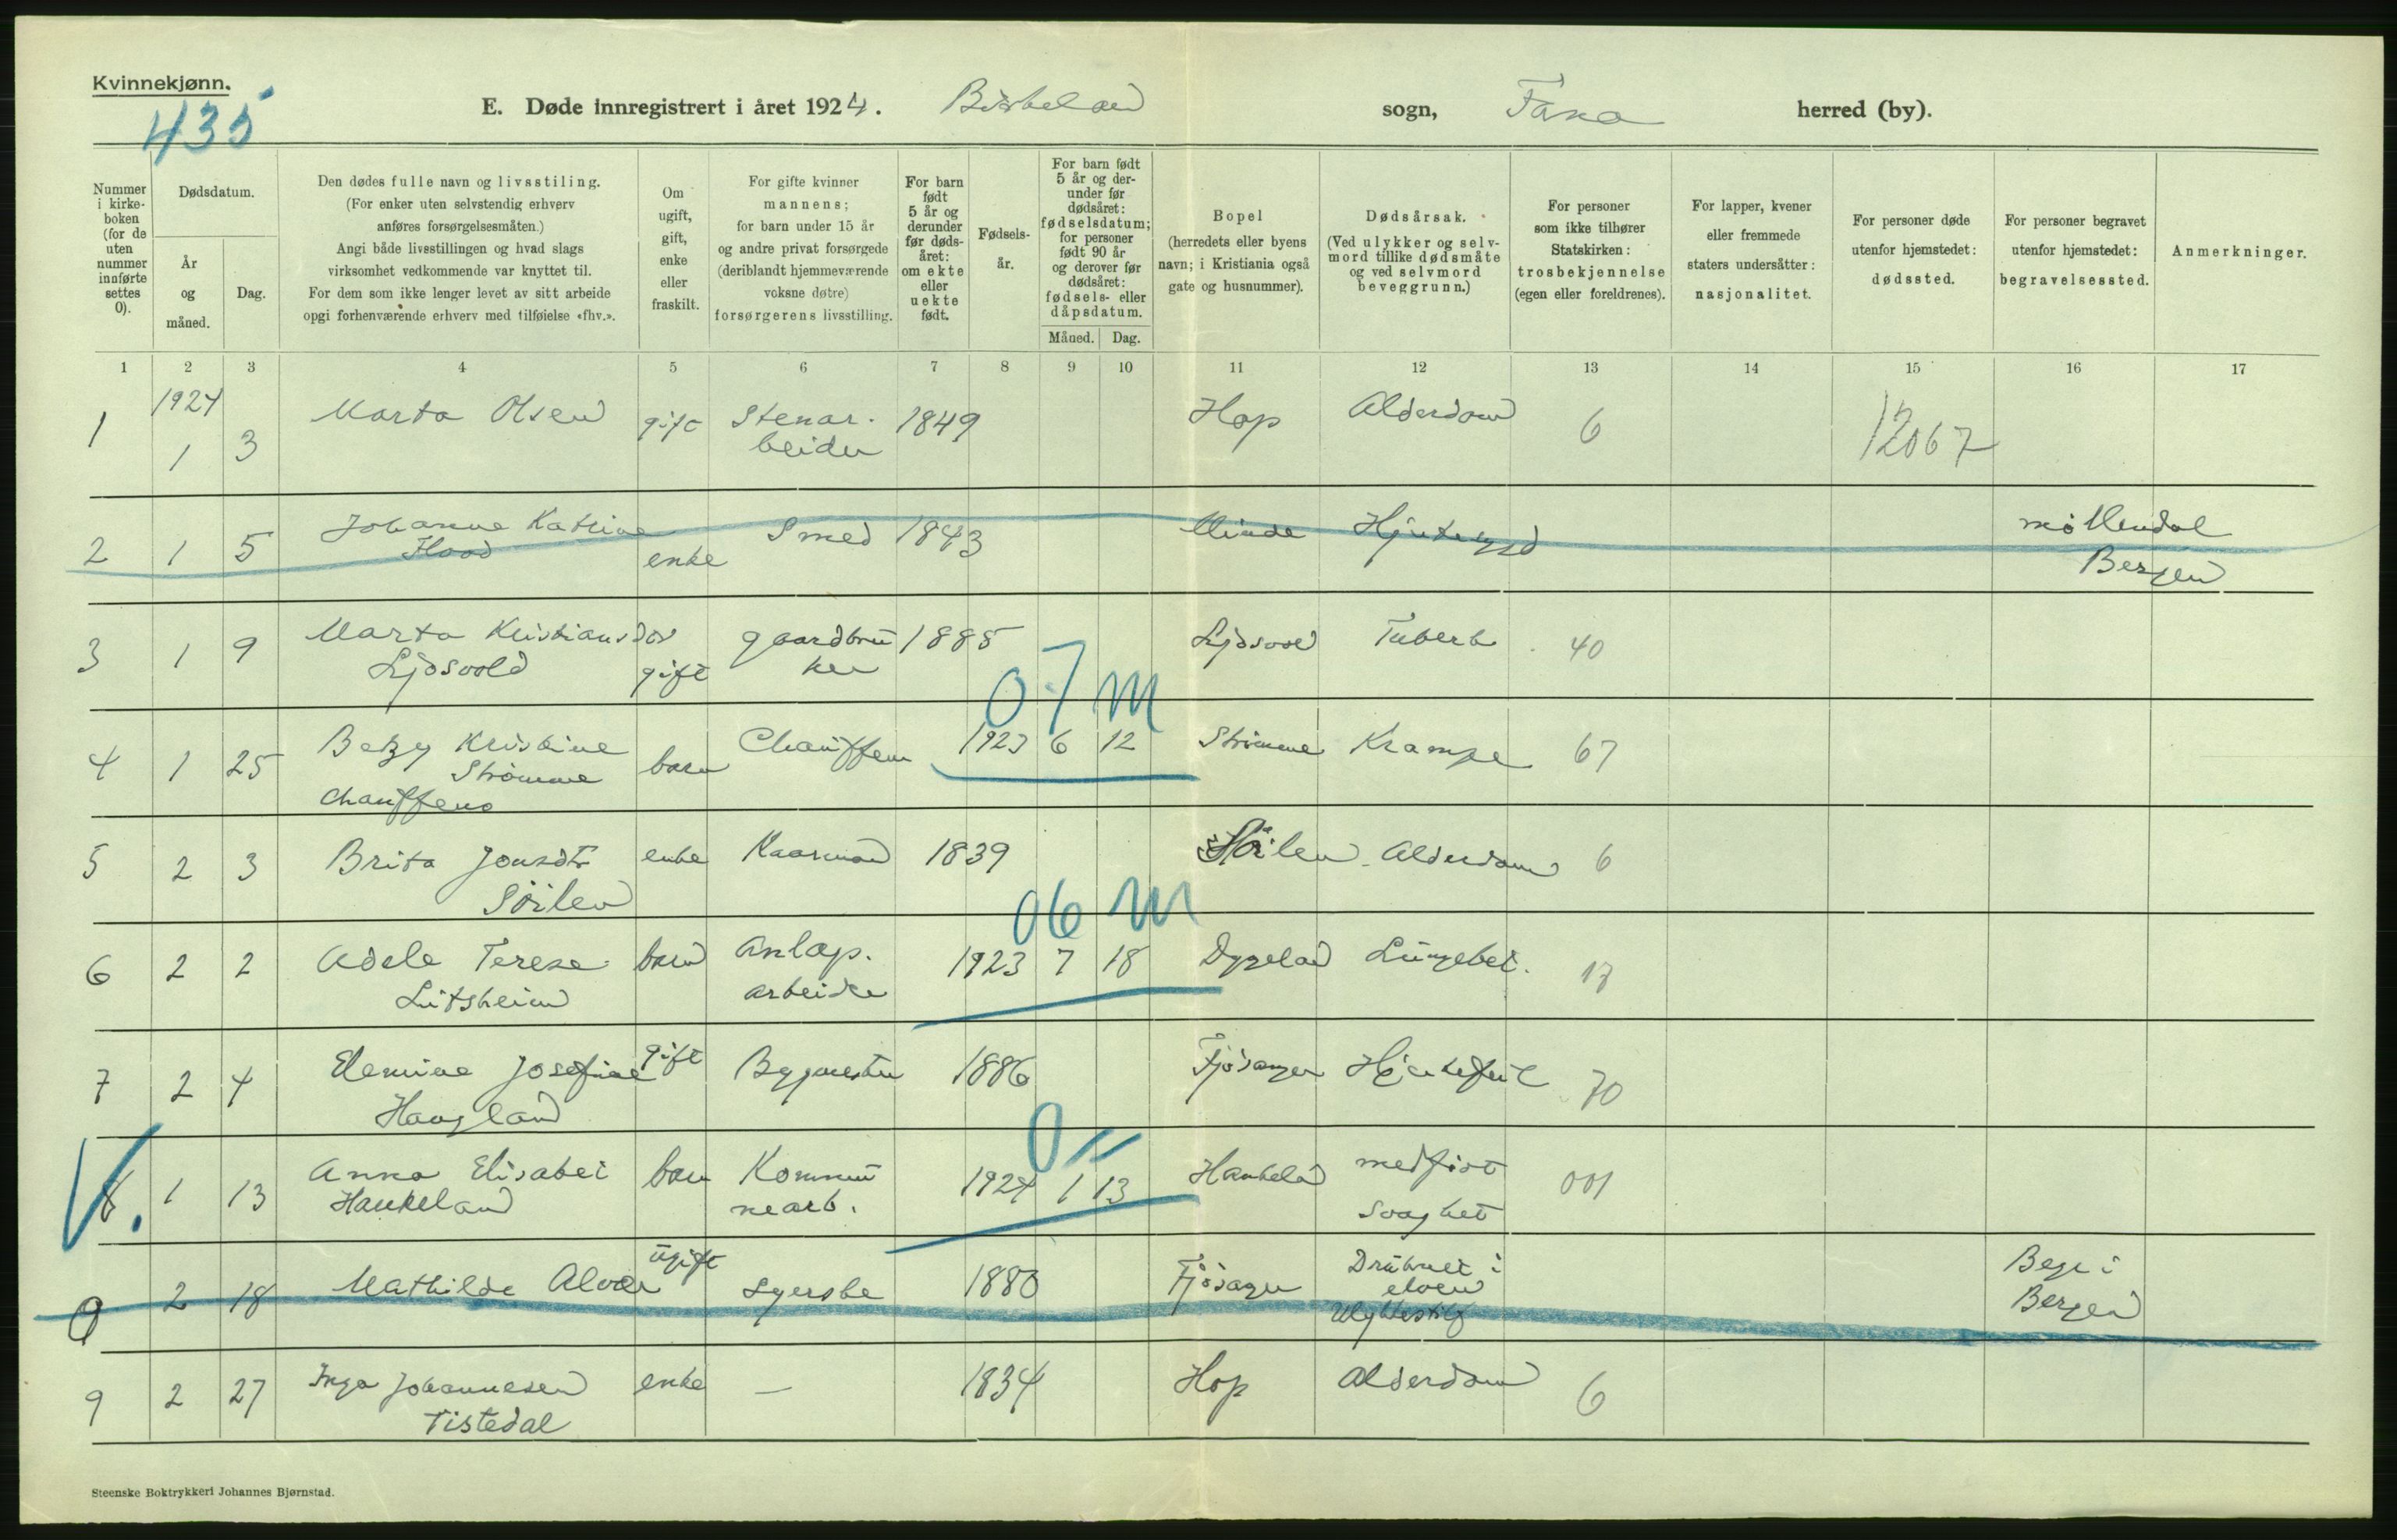 Kvinnekjønn.
435
E. Døde innregistrert i året 1924. Birkeland sogn, Fana herred (by).
Nummer i kirkeboken (for de uten nummer innførte settes 0).
Dødsdatum.
År og måned.
Dag.
Den dødes fulle navn og livsstilling.
(For enker uten selvstendig erhverv anføres forsørgelsesmåten.)
Angi både livsstillingen og hvad slags virksomhet vedkommende var knyttet til.
For dem som ikke lenger levet av sitt arbeide opgi forhenværende erhverv med tilføielse «fhv.».
Om ugift, gift, enke eller fraskilt.
For gifte kvinner mannens; for barn under 15 år og andre privat forsørgede (deriblandt hjemmeværende voksne døtre) forsørgerens livsstilling.
For barn født 5 år og derunder før dødsåret: om ekte eller uekte født.
Fødselsår.
For barn født 5 år og derunder før dødsåret: fødselsdatum; for personer født 90 år og derover før dødsåret: fødsels- eller dåpsdatum.
Måned. Dag.
Bopel (herredets eller byens navn; i Kristiania også gate og husnummer).
Dødsårsak. (Ved ulykker og selvmord tillike dødsmåte og ved selvmord beveggrunn.)
For personer som ikke tilhører Statskirken: trosbekjennelse (egen eller foreldrenes).
For lapper, kvener eller fremmede staters undersåtter: nasjonalitet.
For personer døde utenfor hjemstedet: dødssted.
For personer begravet utenfor hjemstedet: begravelsessted.
Anmerkninger.
1 2 3 4 5 6 7 8 9 10 11 12 13 14 15 16 17
1924
1 1 3 Marta Olsen gift Stenarbeider 1849 Hop Alderdom 6 12067
2 1 5 Johanne Katrine enke Smed 1843 Minde Møllendal
Bergen
3 1 9 Marta Kristiansdtr gift gaardbruker 1885 Tuberk 40
Ljosvold
07 M
4 1 25 Betzy Kristine Strömme barn Chauffeur 1923 6 12 Strömme Krampe 67
Chauffeur
5 2 3 Brita Jonsdtr enke 1839 Söilen Alderdom 6
Söilen
06 M
6 2 2 Adele Terese barn Anlæg. arbeider 1923 7 18 Lungebet. 17
7 2 4 Josefine gift Bygmester 1886 Fjösanger Hjertefeil 70
Haugland
0 11
8 1 13 Anna Elisabet barn 1924 1 13 Haukeland medfödt svaghet 001
Haukeland
9 2 18 Mathilde Alver ugift Syerske 1880 Fjösanger Druknet i elven Begr i
Ulykkestilf Bergen
9 2 27 Inga Johannesen enke — 1834 Hop Alderdom 6
Tistedal
Steenske Boktrykkeri Johannes Bjørnstad.